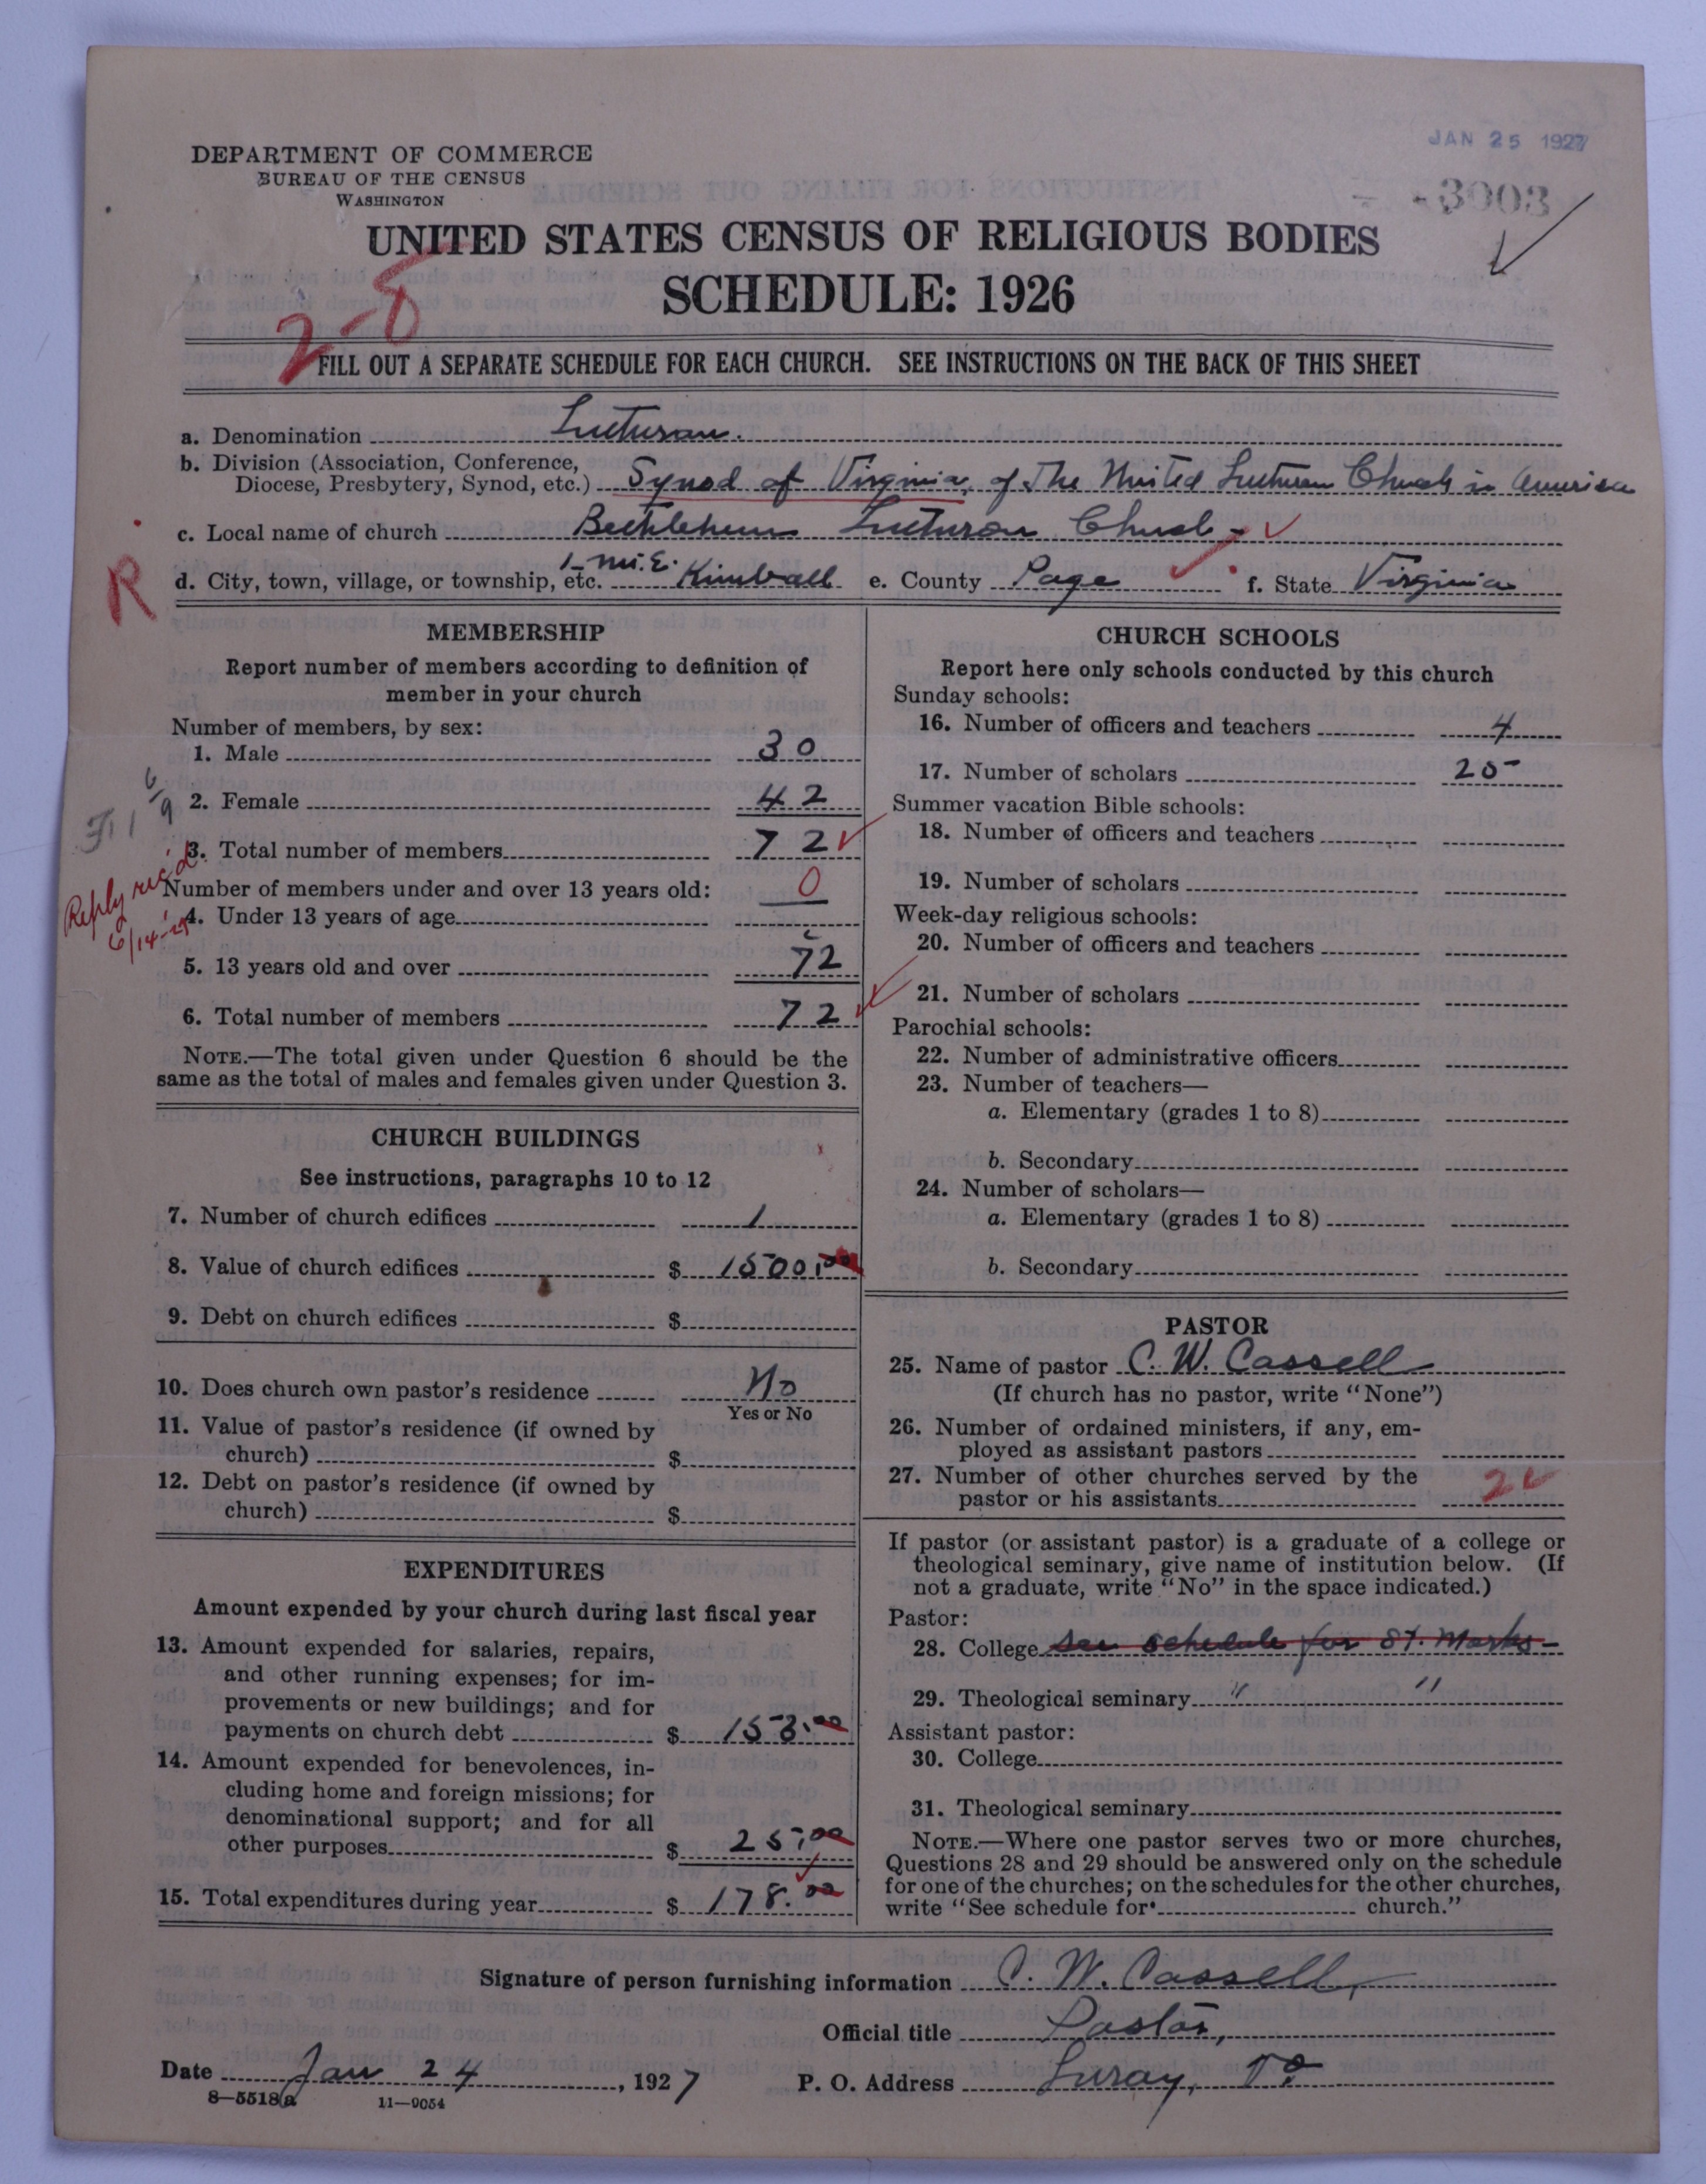 JAN 25 1927
DEPARTMENT OF COMMERCE
BUREAU OF THE CENSUS
WASHINGTON
-3003
UNITED STATES CENSUS OF RELIGIOUS BODIES
SCHEDULE: 1926
2-8
FILL OUT A SEPARATE SCHEDULE FOR EACH CHURCH. SEE INSTRUCTIONS ON THE BACK OF THIS SHEET
a. Denomination Lutheran.
b. Division (Association, Conference,
Diocese, Presbytery, Synod, etc.) Synod of Virginia, of The United Lutheran Church in America
c. Local name of church Bethlehem Lutheran Church
1 mi. E.
d. City, town, village, or township, etc. Kimball e. County Page f. State Virginia
R
MEMBERSHIP
Report number of members according to definition of
member in your church
Number of members, by sex:
1. Male 30
2. Female 42
3. Total number of members 72
Reply rec'd.
Number of members under and over 13 years old: 0
4. Under 13 years of age
5. 13 years old and over 72
6. Total number of members 72
NOTE.—The total given under Question 6 should be the
same as the total of males and females given under Question 3.
CHURCH BUILDINGS
See instructions, paragraphs 10 to 12
7. Number of church edifices 1
8. Value of church edifices $ 1500.00
9. Debt on church edifices $
10. Does church own pastor's residence No
Yes or No
11. Value of pastor's residence (if owned by
church) $
12. Debt on pastor's residence (if owned by
church) $
EXPENDITURES
Amount expended by your church during last fiscal year
13. Amount expended for salaries, repairs,
and other running expenses; for im-
provements or new buildings; and for
payments on church debt $ 153.00
14. Amount expended for benevolences, in-
cluding home and foreign missions; for
denominational support; and for all
other purposes $ 25.00
15. Total expenditures during year $ 178.00
CHURCH SCHOOLS
Report here only schools conducted by this church
Sunday schools:
16. Number of officers and teachers 4
17. Number of scholars 25
Summer vacation Bible schools:
18. Number of officers and teachers
19. Number of scholars
Week-day religious schools:
20. Number of officers and teachers
21. Number of scholars
Parochial schools:
22. Number of administrative officers
23. Number of teachers—
a. Elementary (grades 1 to 8)
b. Secondary
24. Number of scholars—
a. Elementary (grades 1 to 8)
b. Secondary
PASTOR
25. Name of pastor C. W. Cassell
(If church has no pastor, write "None")
26. Number of ordained ministers, if any, em-
ployed as assistant pastors
27. Number of other churches served by the
pastor or his assistants 2
If pastor (or assistant pastor) is a graduate of a college or
theological seminary, give name of institution below. (If
not a graduate, write "No" in the space indicated.)
Pastor:
28. College See schedule for St. Marks
29. Theological seminary " "
Assistant pastor:
30. College
31. Theological seminary
NOTE.—Where one pastor serves two or more churches,
Questions 28 and 29 should be answered only on the schedule
for one of the churches; on the schedules for the other churches,
write "See schedule for church."
Signature of person furnishing information C. W. Cassell,
Official title Pastor,
Date Jan 24, 1927 P. O. Address Luray, Va
8-5518a 11-9054